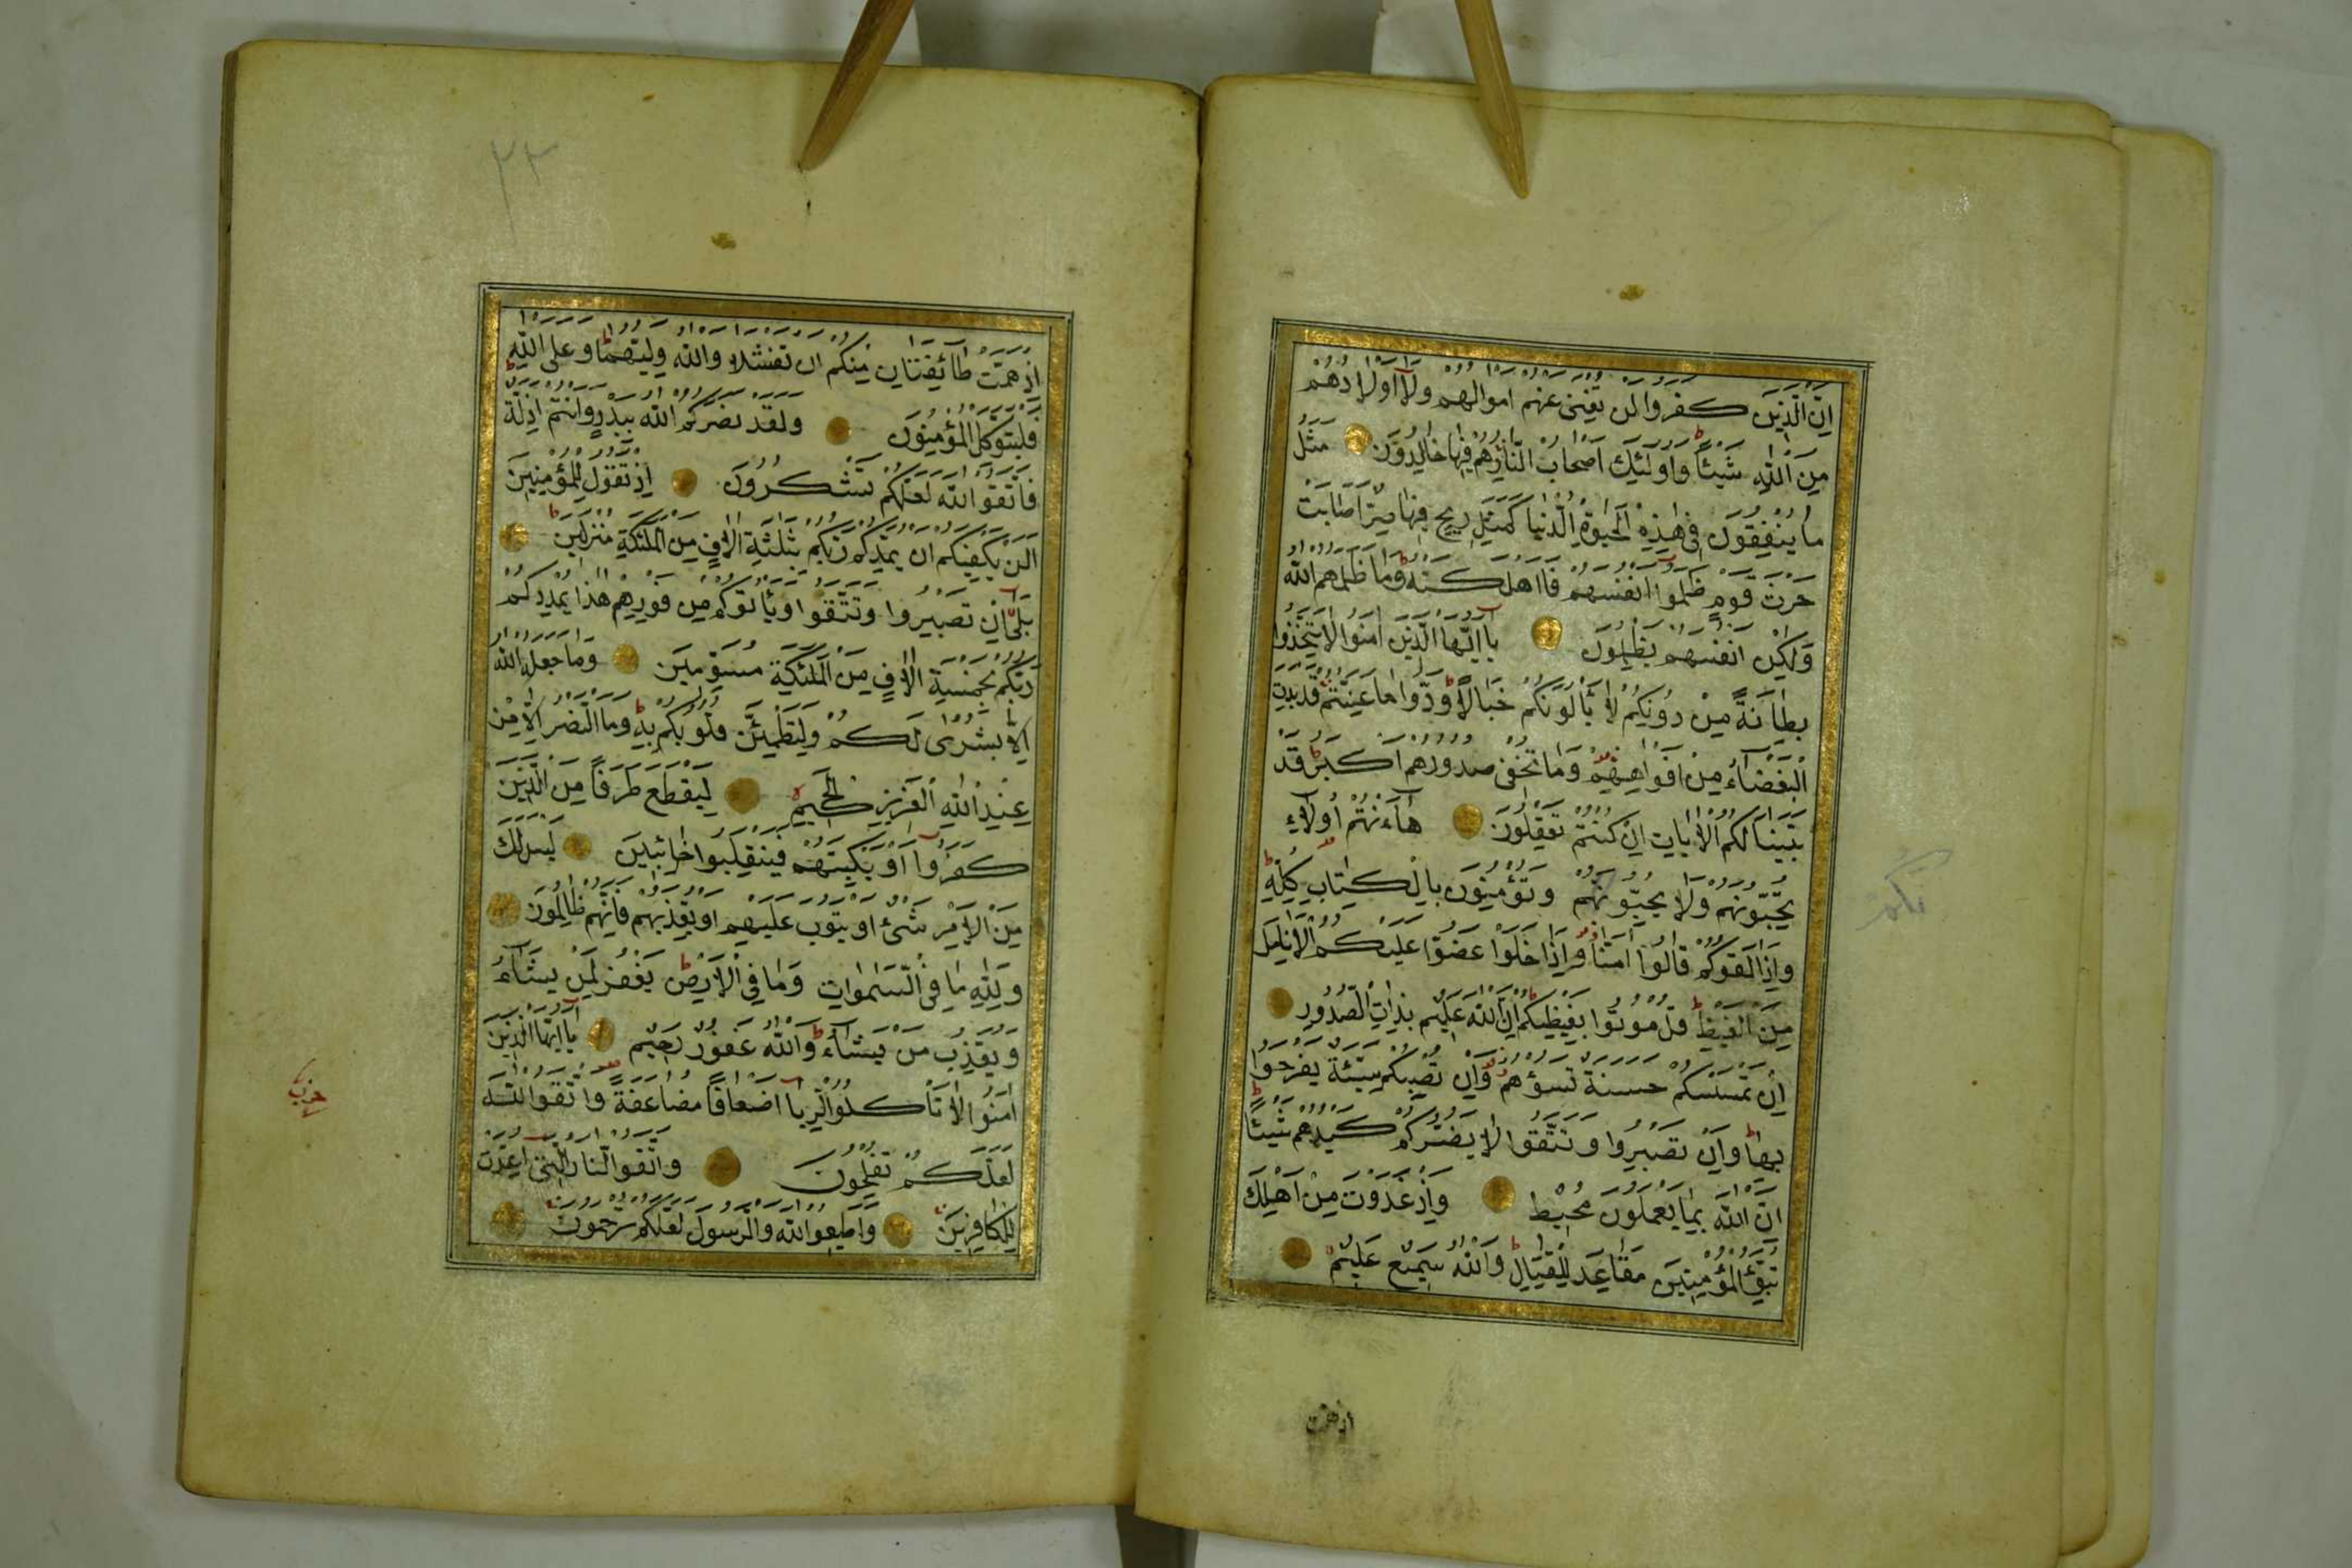 اِنَّ الَّذِينَ كَفَرُوا لَنْ تُغْنِىَ عَنْهُمْ اَمْوَالُهُمْ وَلَٓا اَوْلَادُهُمْ
مِنَ اللّٰهِ شَيْئًا وَاُولٰئِكَ اَصْحَابُ النَّارِ هُمْ فِيهَا خَالِدُونَ مَثَلُ
مَا يُنْفِقُونَ فِى هٰذِهِ الْحَيٰوةِ الدُّنْيَا كَمَثَلِ رِيحٍ فِيهَا صِرٌّ اَصَابَتْ
حَرْثَ قَوْمٍ ظَلَمُٓوا اَنْفُسَهُمْ فَاَهْلَكَتْهُ وَمَا ظَلَمَهُمُ اللّٰهُ
وَلٰكِنْ اَنْفُسَهُمْ يَظْلِمُونَ يَٓا اَيُّهَا الَّذِينَ اٰمَنُوا لَا تَتَّخِذُوا
بِطَانَةً مِنْ دُونِكُمْ لَا يَأْلُونَكُمْ خَبَالًا وَدُّوا مَا عَنِتُّمْ قَدْ بَدَتِ
الْبَغْضَٓاءُ مِنْ اَفْوَاهِهِمْ وَمَا تُخْفِى صُدُورُهُمْ اَكْبَرُ قَدْ
بَيَّنَّا لَكُمُ الْاٰيَاتِ اِنْ كُنْتُمْ تَعْقِلُونَ هَٓا اَنْتُمْ اُولَٓاءِ
تُحِبُّونَهُمْ وَلَا يُحِبُّونَكُمْ وَتُؤْمِنُونَ بِالْكِتَابِ كُلِّهِ
وَاِذَا لَقُوكُمْ قَالُٓوا اٰمَنَّا وَاِذَا خَلَوْا عَضُّوا عَلَيْكُمُ الْاَنَامِلَ
مِنَ الْغَيْظِ قُلْ مُوتُوا بِغَيْظِكُمْ اِنَّ اللّٰهَ عَلِيمٌ بِذَاتِ الصُّدُورِ
اِنْ تَمْسَسْكُمْ حَسَنَةٌ تَسُؤْهُمْ وَاِنْ تُصِبْكُمْ سَيِّئَةٌ يَفْرَحُوا
بِهَا وَاِنْ تَصْبِرُوا وَتَتَّقُوا لَا يَضُرُّكُمْ كَيْدُهُمْ شَيْئًا
اِنَّ اللّٰهَ بِمَا يَعْمَلُونَ مُحِيطٌ وَاِذْ غَدَوْتَ مِنْ اَهْلِكَ
تُبَوِّئُ الْمُؤْمِنِينَ مَقَاعِدَ لِلْقِتَالِ وَاللّٰهُ سَمِيعٌ عَلِيمٌ
نكم
اذ همت
٢٢
اِذْ هَمَّتْ طَٓائِفَتَانِ مِنْكُمْ اَنْ تَفْشَلَا وَاللّٰهُ وَلِيُّهُمَا وَعَلَى اللّٰهِ
فَلْيَتَوَكَّلِ الْمُؤْمِنُونَ وَلَقَدْ نَصَرَكُمُ اللّٰهُ بِبَدْرٍ وَاَنْتُمْ اَذِلَّةٌ
فَاتَّقُوا اللّٰهَ لَعَلَّكُمْ تَشْكُرُونَ اِذْ تَقُولُ لِلْمُؤْمِنِينَ
اَلَنْ يَكْفِيَكُمْ اَنْ يُمِدَّكُمْ رَبُّكُمْ بِثَلٰثَةِ اٰلَافٍ مِنَ الْمَلٰئِكَةِ مُنْزَلِينَ
بَلٰٓى اِنْ تَصْبِرُوا وَتَتَّقُوا وَيَأْتُوكُمْ مِنْ فَوْرِهِمْ هٰذَا يُمْدِدْكُمْ
رَبُّكُمْ بِخَمْسَةِ اٰلَافٍ مِنَ الْمَلٰئِكَةِ مُسَوِّمِينَ وَمَا جَعَلَهُ اللّٰهُ
اِلَّا بُشْرٰى لَكُمْ وَلِتَطْمَئِنَّ قُلُوبُكُمْ بِهِ وَمَا النَّصْرُ اِلَّا مِنْ
عِنْدِ اللّٰهِ الْعَزِيزِ الْحَكِيمِ لِيَقْطَعَ طَرَفًا مِنَ الَّذِينَ
كَفَرُٓوا اَوْ يَكْبِتَهُمْ فَيَنْقَلِبُوا خَٓائِبِينَ لَيْسَ لَكَ
مِنَ الْاَمْرِ شَىْءٌ اَوْ يَتُوبَ عَلَيْهِمْ اَوْ يُعَذِّبَهُمْ فَاِنَّهُمْ ظَالِمُونَ
وَلِلّٰهِ مَا فِى السَّمٰوَاتِ وَمَا فِى الْاَرْضِ يَغْفِرُ لِمَنْ يَشَٓاءُ
وَيُعَذِّبُ مَنْ يَشَٓاءُ وَاللّٰهُ غَفُورٌ رَحِيمٌ يَٓا اَيُّهَا الَّذِينَ
اٰمَنُوا لَا تَأْكُلُوا الرِّبَٓا اَضْعَافًا مُضَاعَفَةً وَاتَّقُوا اللّٰهَ
لَعَلَّكُمْ تُفْلِحُونَ وَاتَّقُوا النَّارَ الَّتِٓى اُعِدَّتْ
لِلْكَافِرِينَ وَاَطِيعُوا اللّٰهَ وَالرَّسُولَ لَعَلَّكُمْ تُرْحَمُونَ
حزب